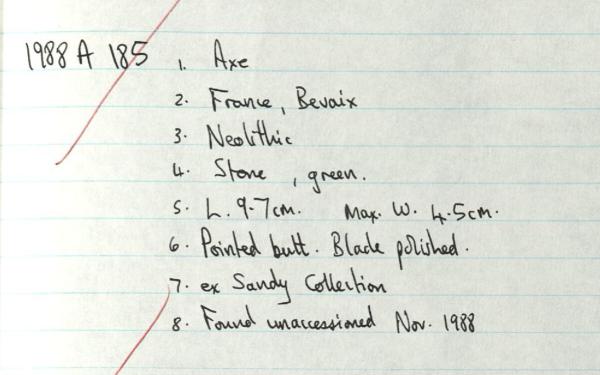 1988 A 185 1. Axe
2. France, Bevaix
3. Neolithic
4. Stone , green.
5. L. 9.7cm. Max. W. 4.5cm.
6. Pointed butt. Blade polished.
7. ex Sandy Collection
8. Found unaccessioned Nov. 1988